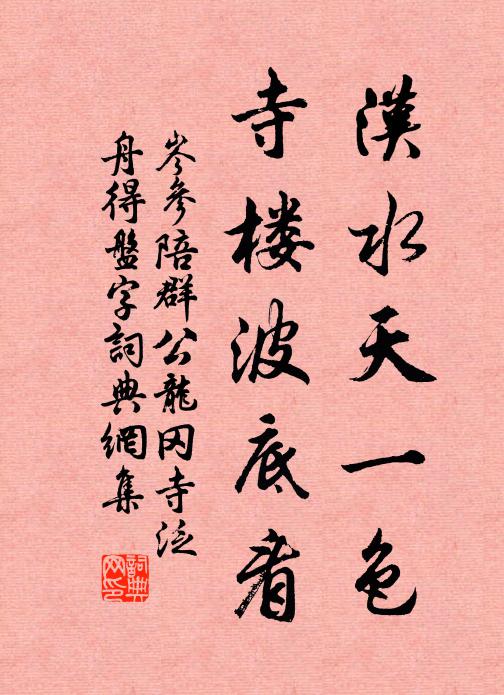 漢水天一色
寺楼波底看
岑參陪群公龍冈寺泛
舟得盤字詞典網集
詞典
网印